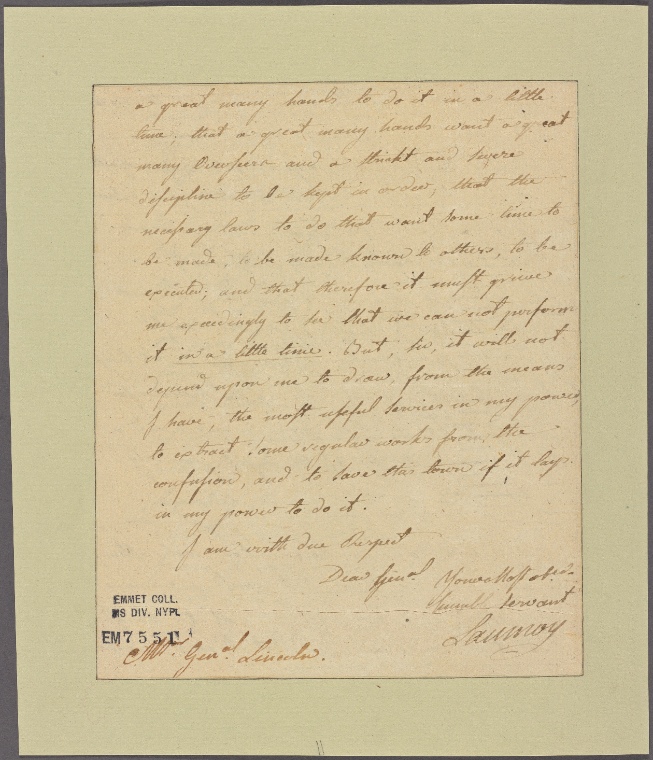 a great many hands to do it in a little
time; that a great many hands want a great
many Overseers and a strickt and severe
discipline to be kept in order, that the
necessary laws to do that want some time to
be made, to be made known to others, to be
executed; and that therefore it must grieve
me exceedingly to see that we can not perform
it in a little time. But, Sir, it will not
depend upon me to draw, from the means
I have, the most usefull services in my power,
to extract some regular works from the
confusion, and to save this town if it lays
in my power to do it.
I am with due Respect
Dear Genal Your Most obedt
humble Servant
Laumoy
EMMET COLL.
MS DIV. NYPL
EM7551
Genal Lincoln.